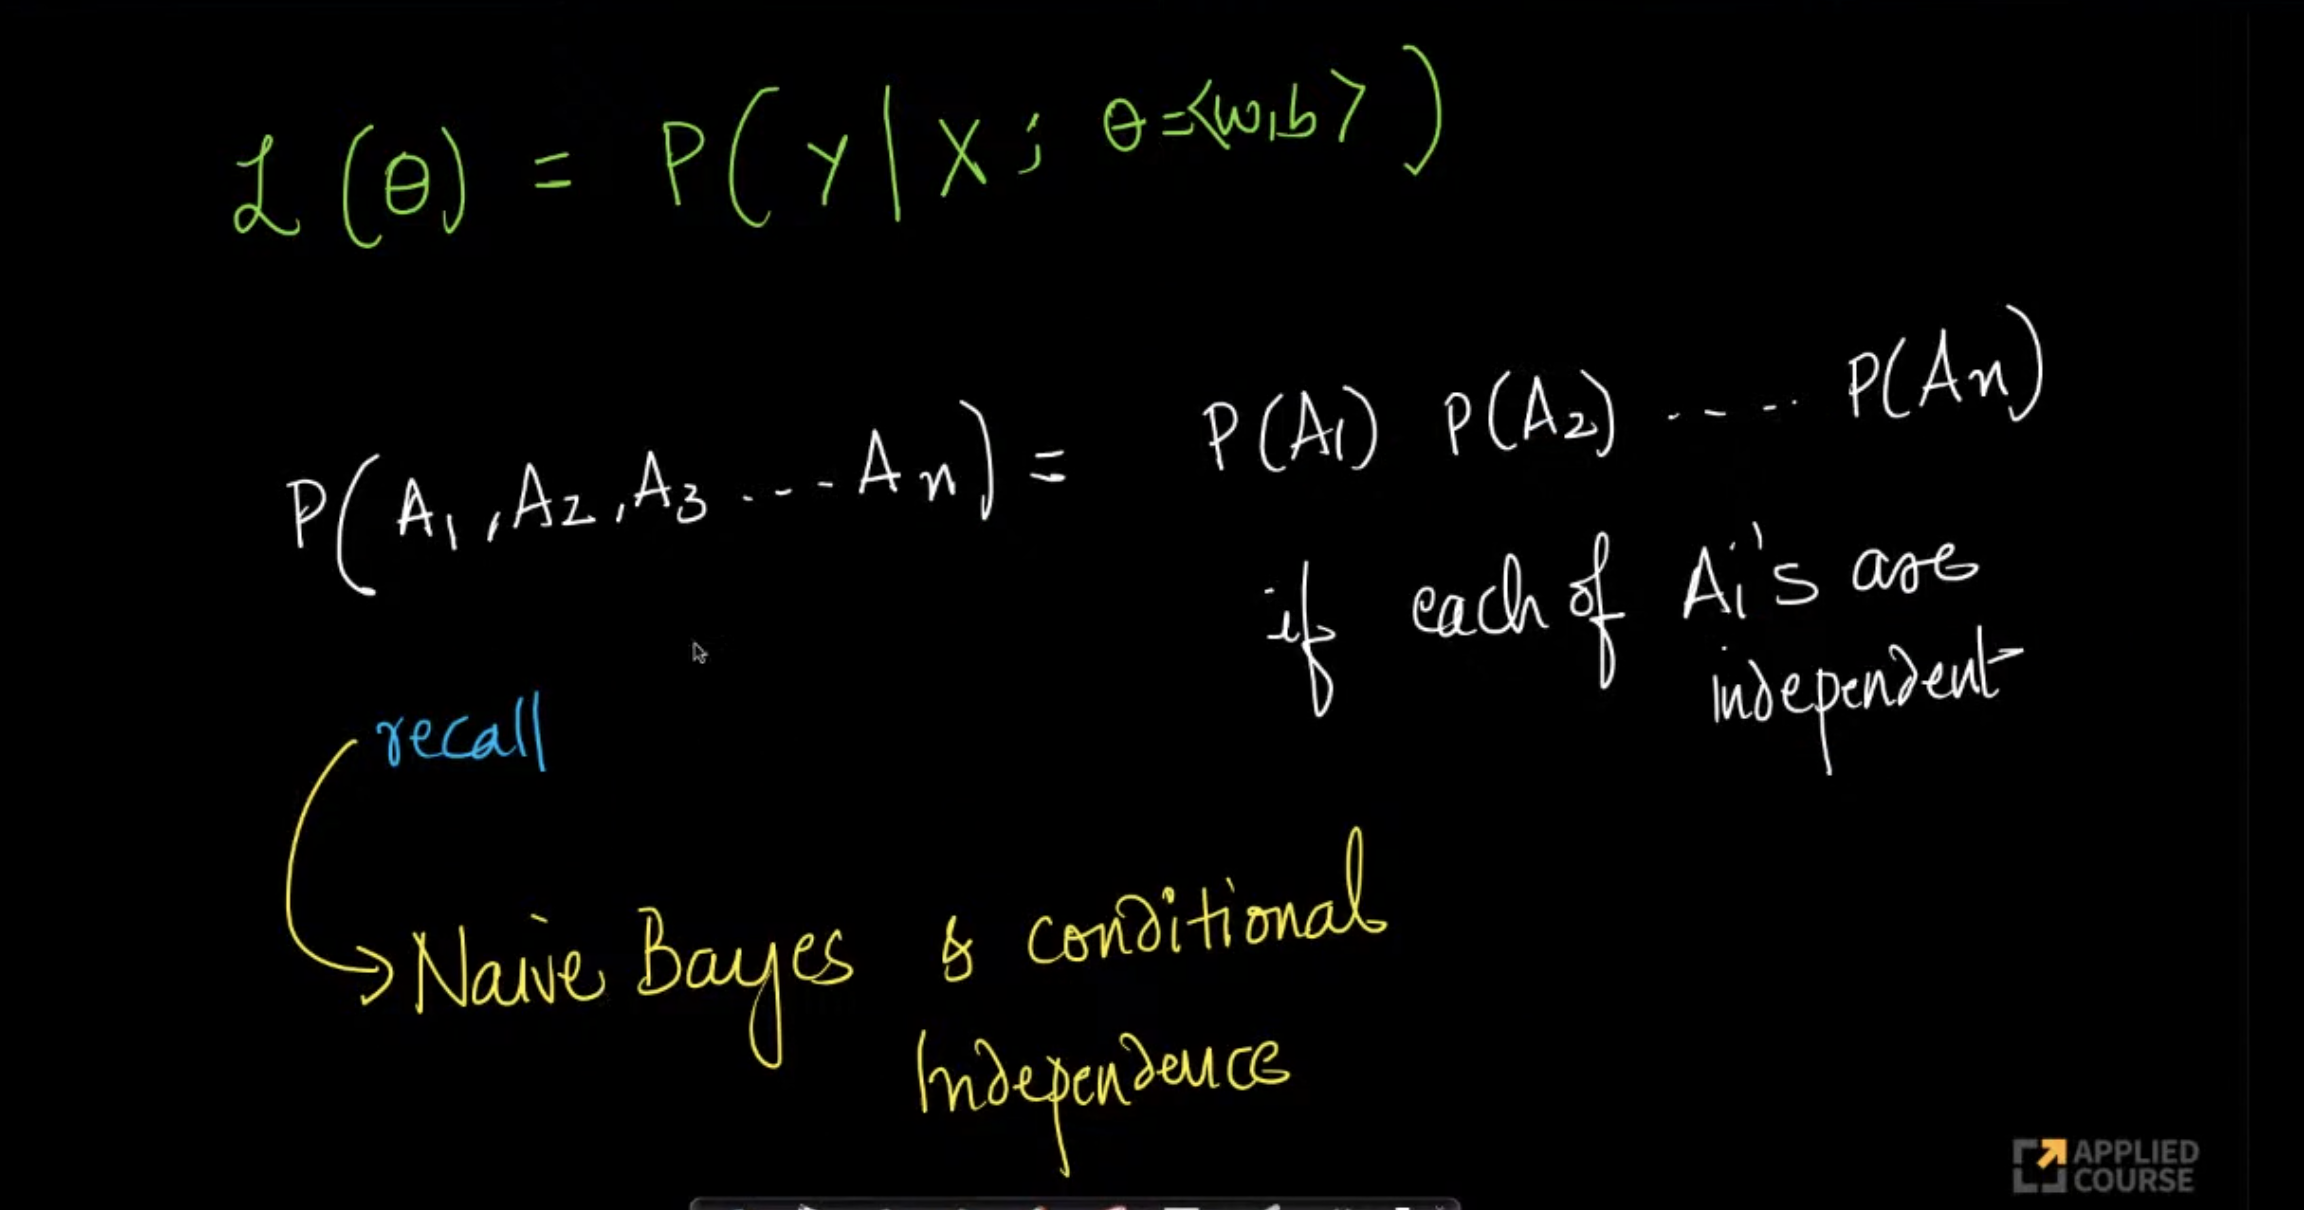 L(θ) = P(Y|X; θ=<w,b>)
P(A1, A2, A3 ... An) = P(A1) P(A2) ..... P(An)
if each of Ai's are
independent
recall
→ Naive Bayes & conditional
Independence
APPLIED
COURSE